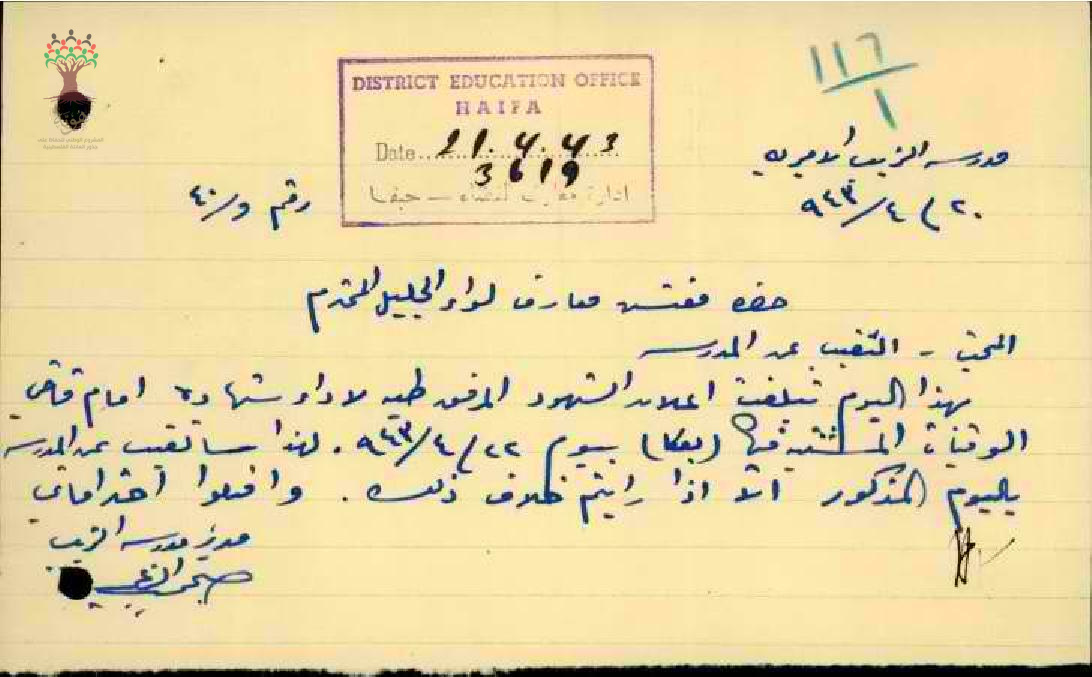 ١١٦
١
DISTRICT EDUCATION OFFICE
HAIFA
Date 21.4.43
3619
ادارة معارف لقضاء - حيفا
مدرسة الزيب الاميرية
٢٠/٤/٩٤٣
رقم و/٤٠
حضرة مفتش معارف لواء الجليل المحترم
المبحث - التغيب عن المدرسة
بهذا اليوم تبلغت اعلان الشهود المرفق طيه لاداء شهادة امام قاضي
(بعكا) بيوم ٢٢/٤/٩٤٣. لهذا ساتغيب عن المدرسة
باليوم المذكور الا اذا رايتم خلاف ذلك. واقبلوا احتراماتي
مدير مدرسة الزيب